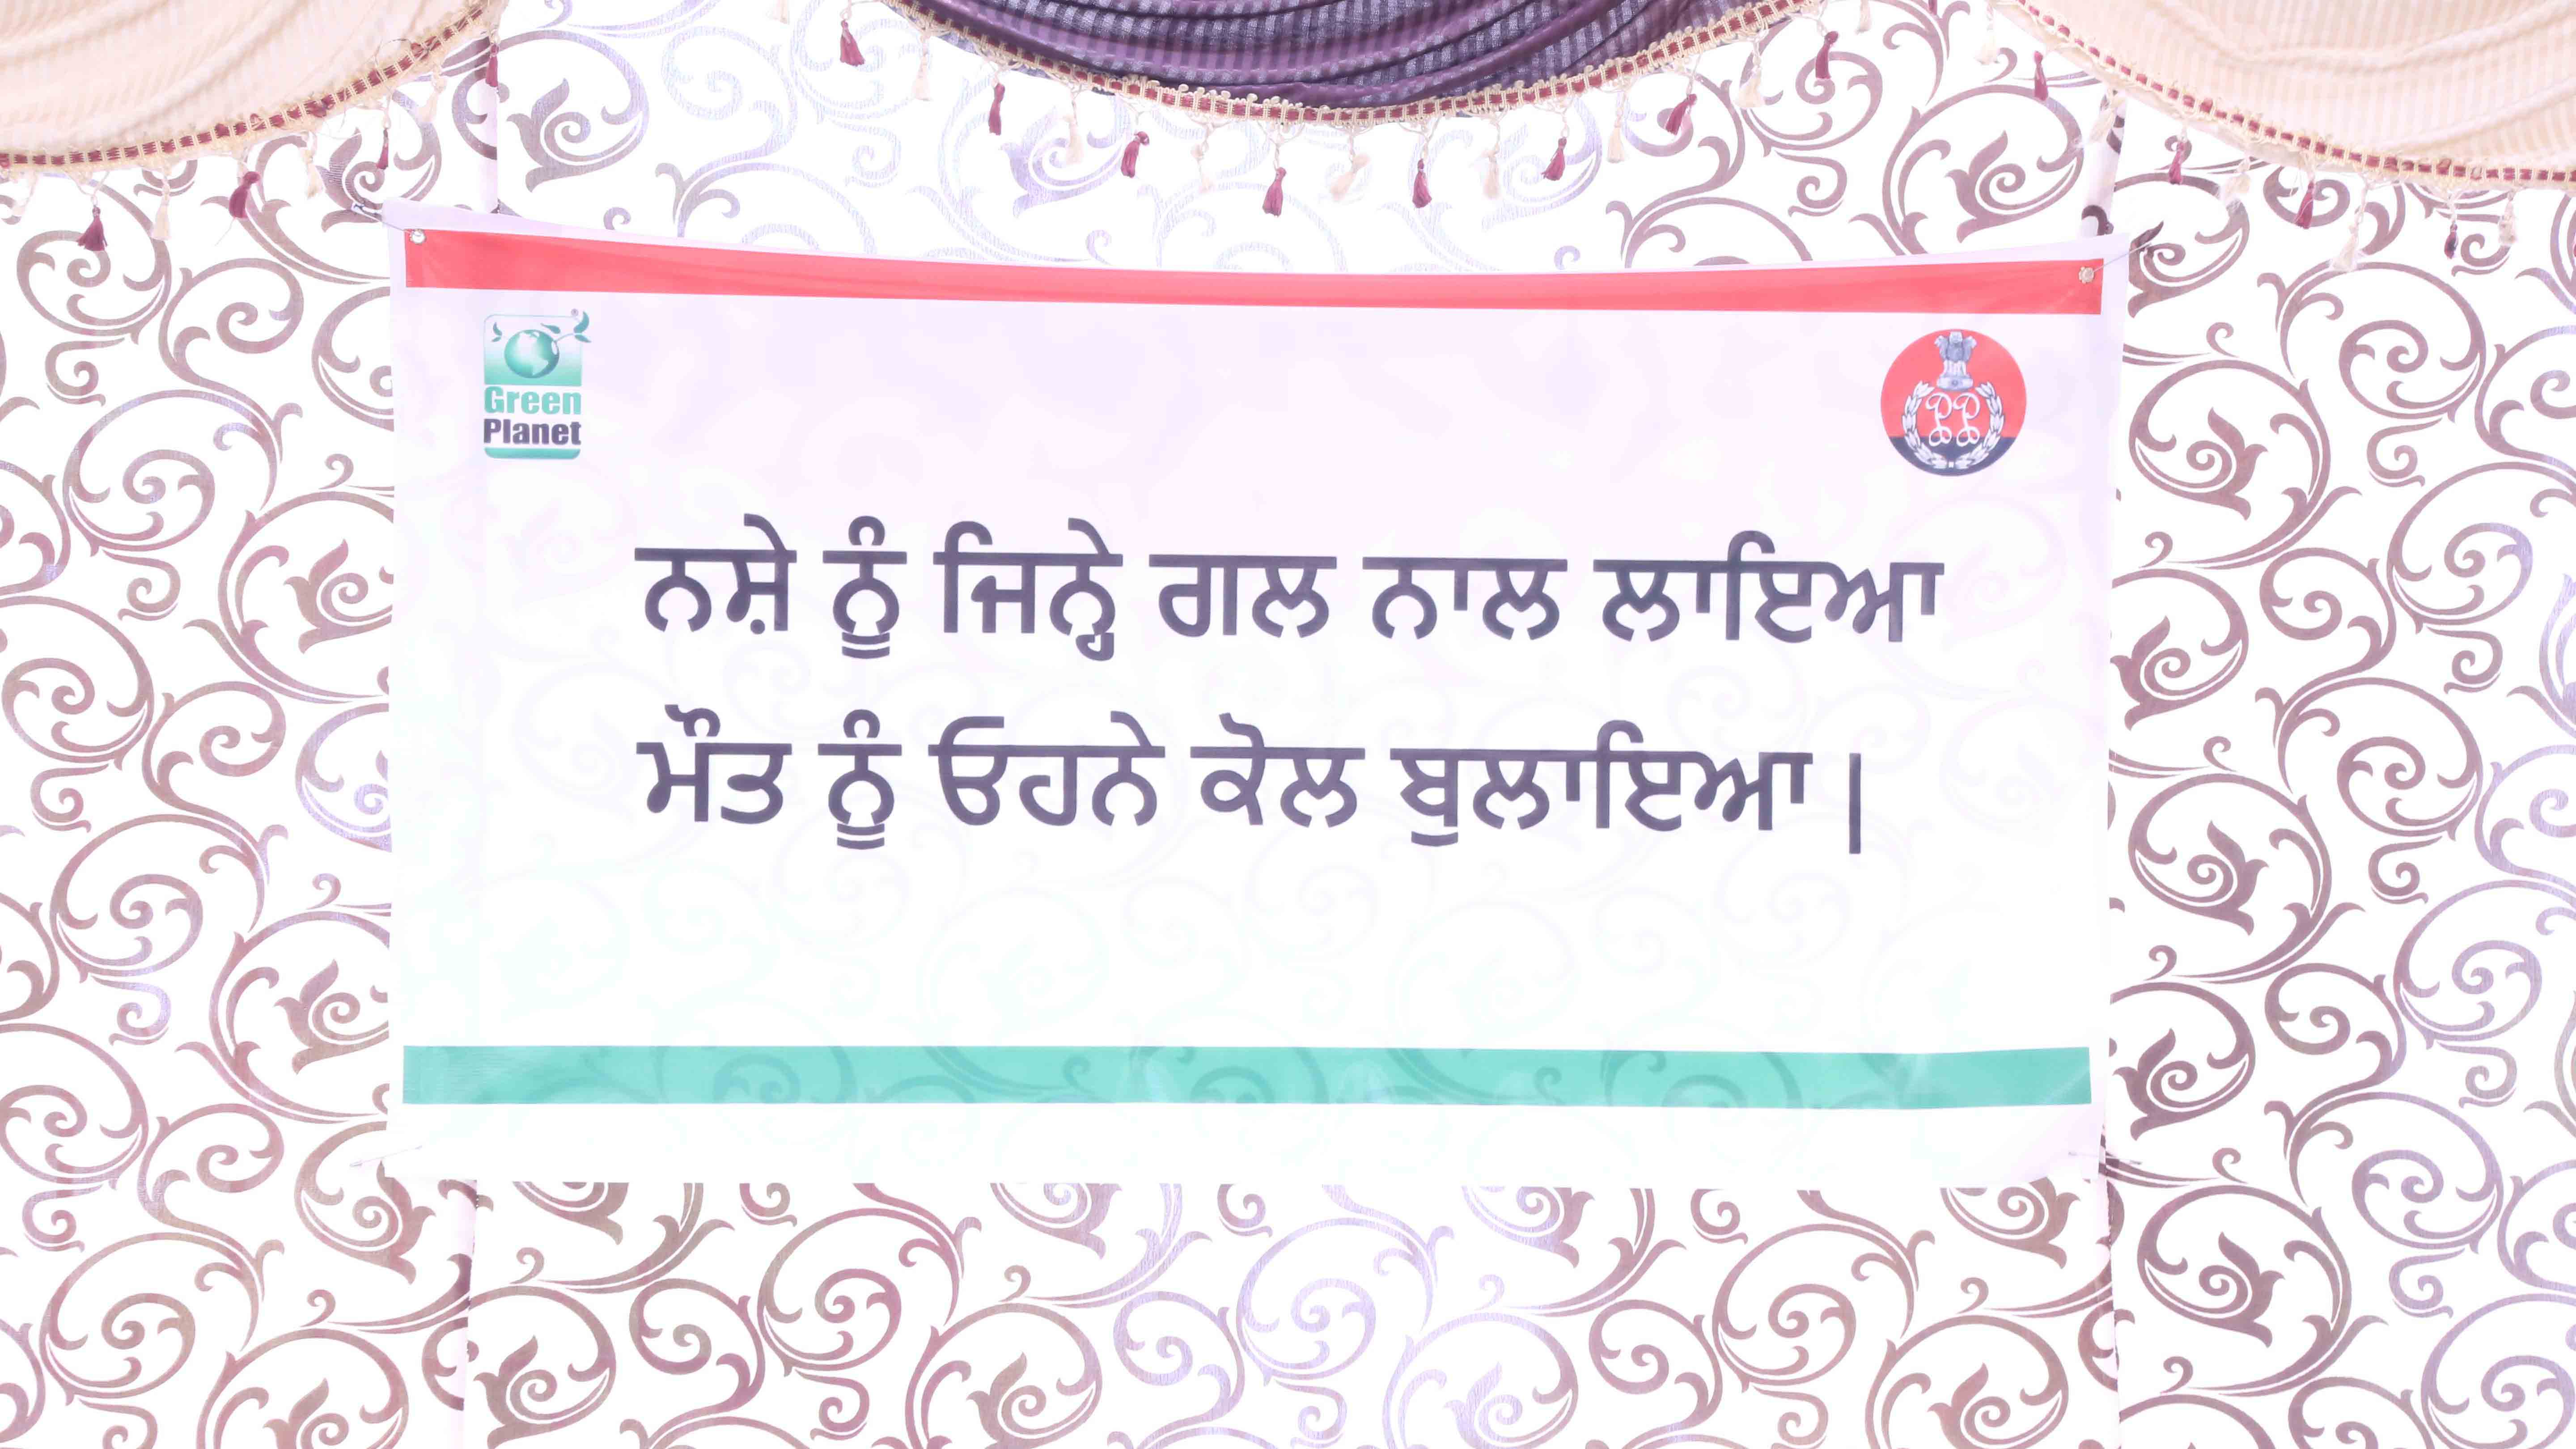 Green
Planet
ਨਸ਼ੇ ਨੂੰ ਜਿਨ੍ਹੇ ਗਲ ਨਾਲ ਲਾਇਆ
ਮੌਤ ਨੂੰ ਓਹਨੇ ਕੋਲ ਬੁਲਾਇਆ |